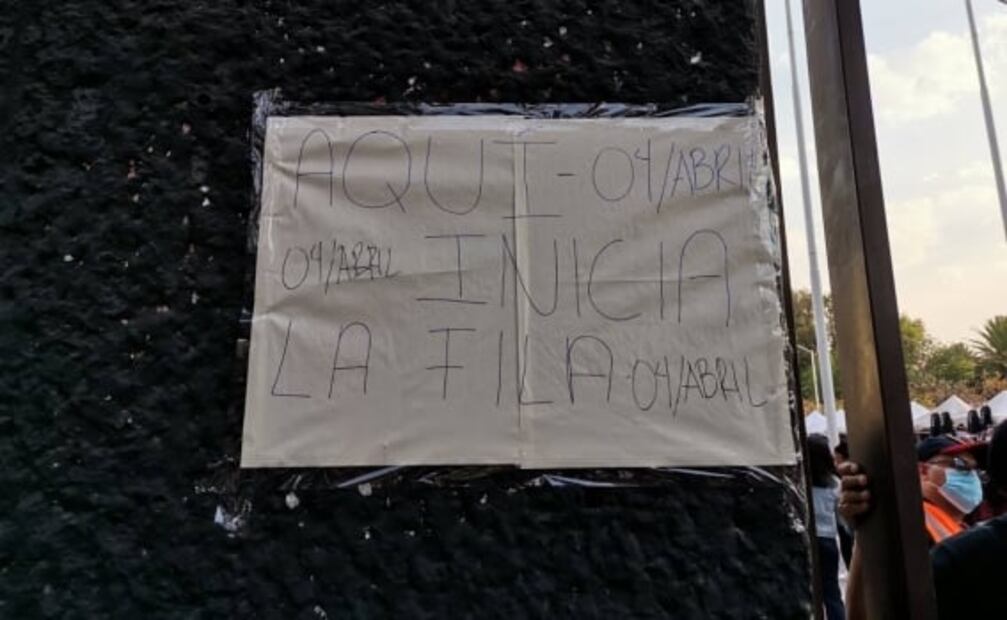 AQUÍ - 04/ABRIL
04/ABRIL INICIA
LA FILA 04/ABRIL